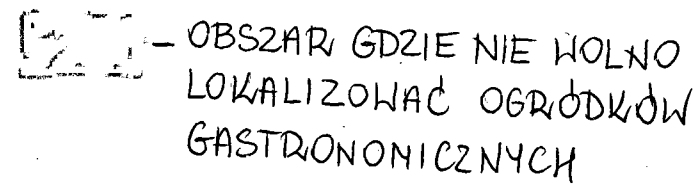 – OBSZAR GDZIE NIE WOLNO
LOKALIZOWAĆ OGRÓDKÓW
GASTRONOMICZNYCH